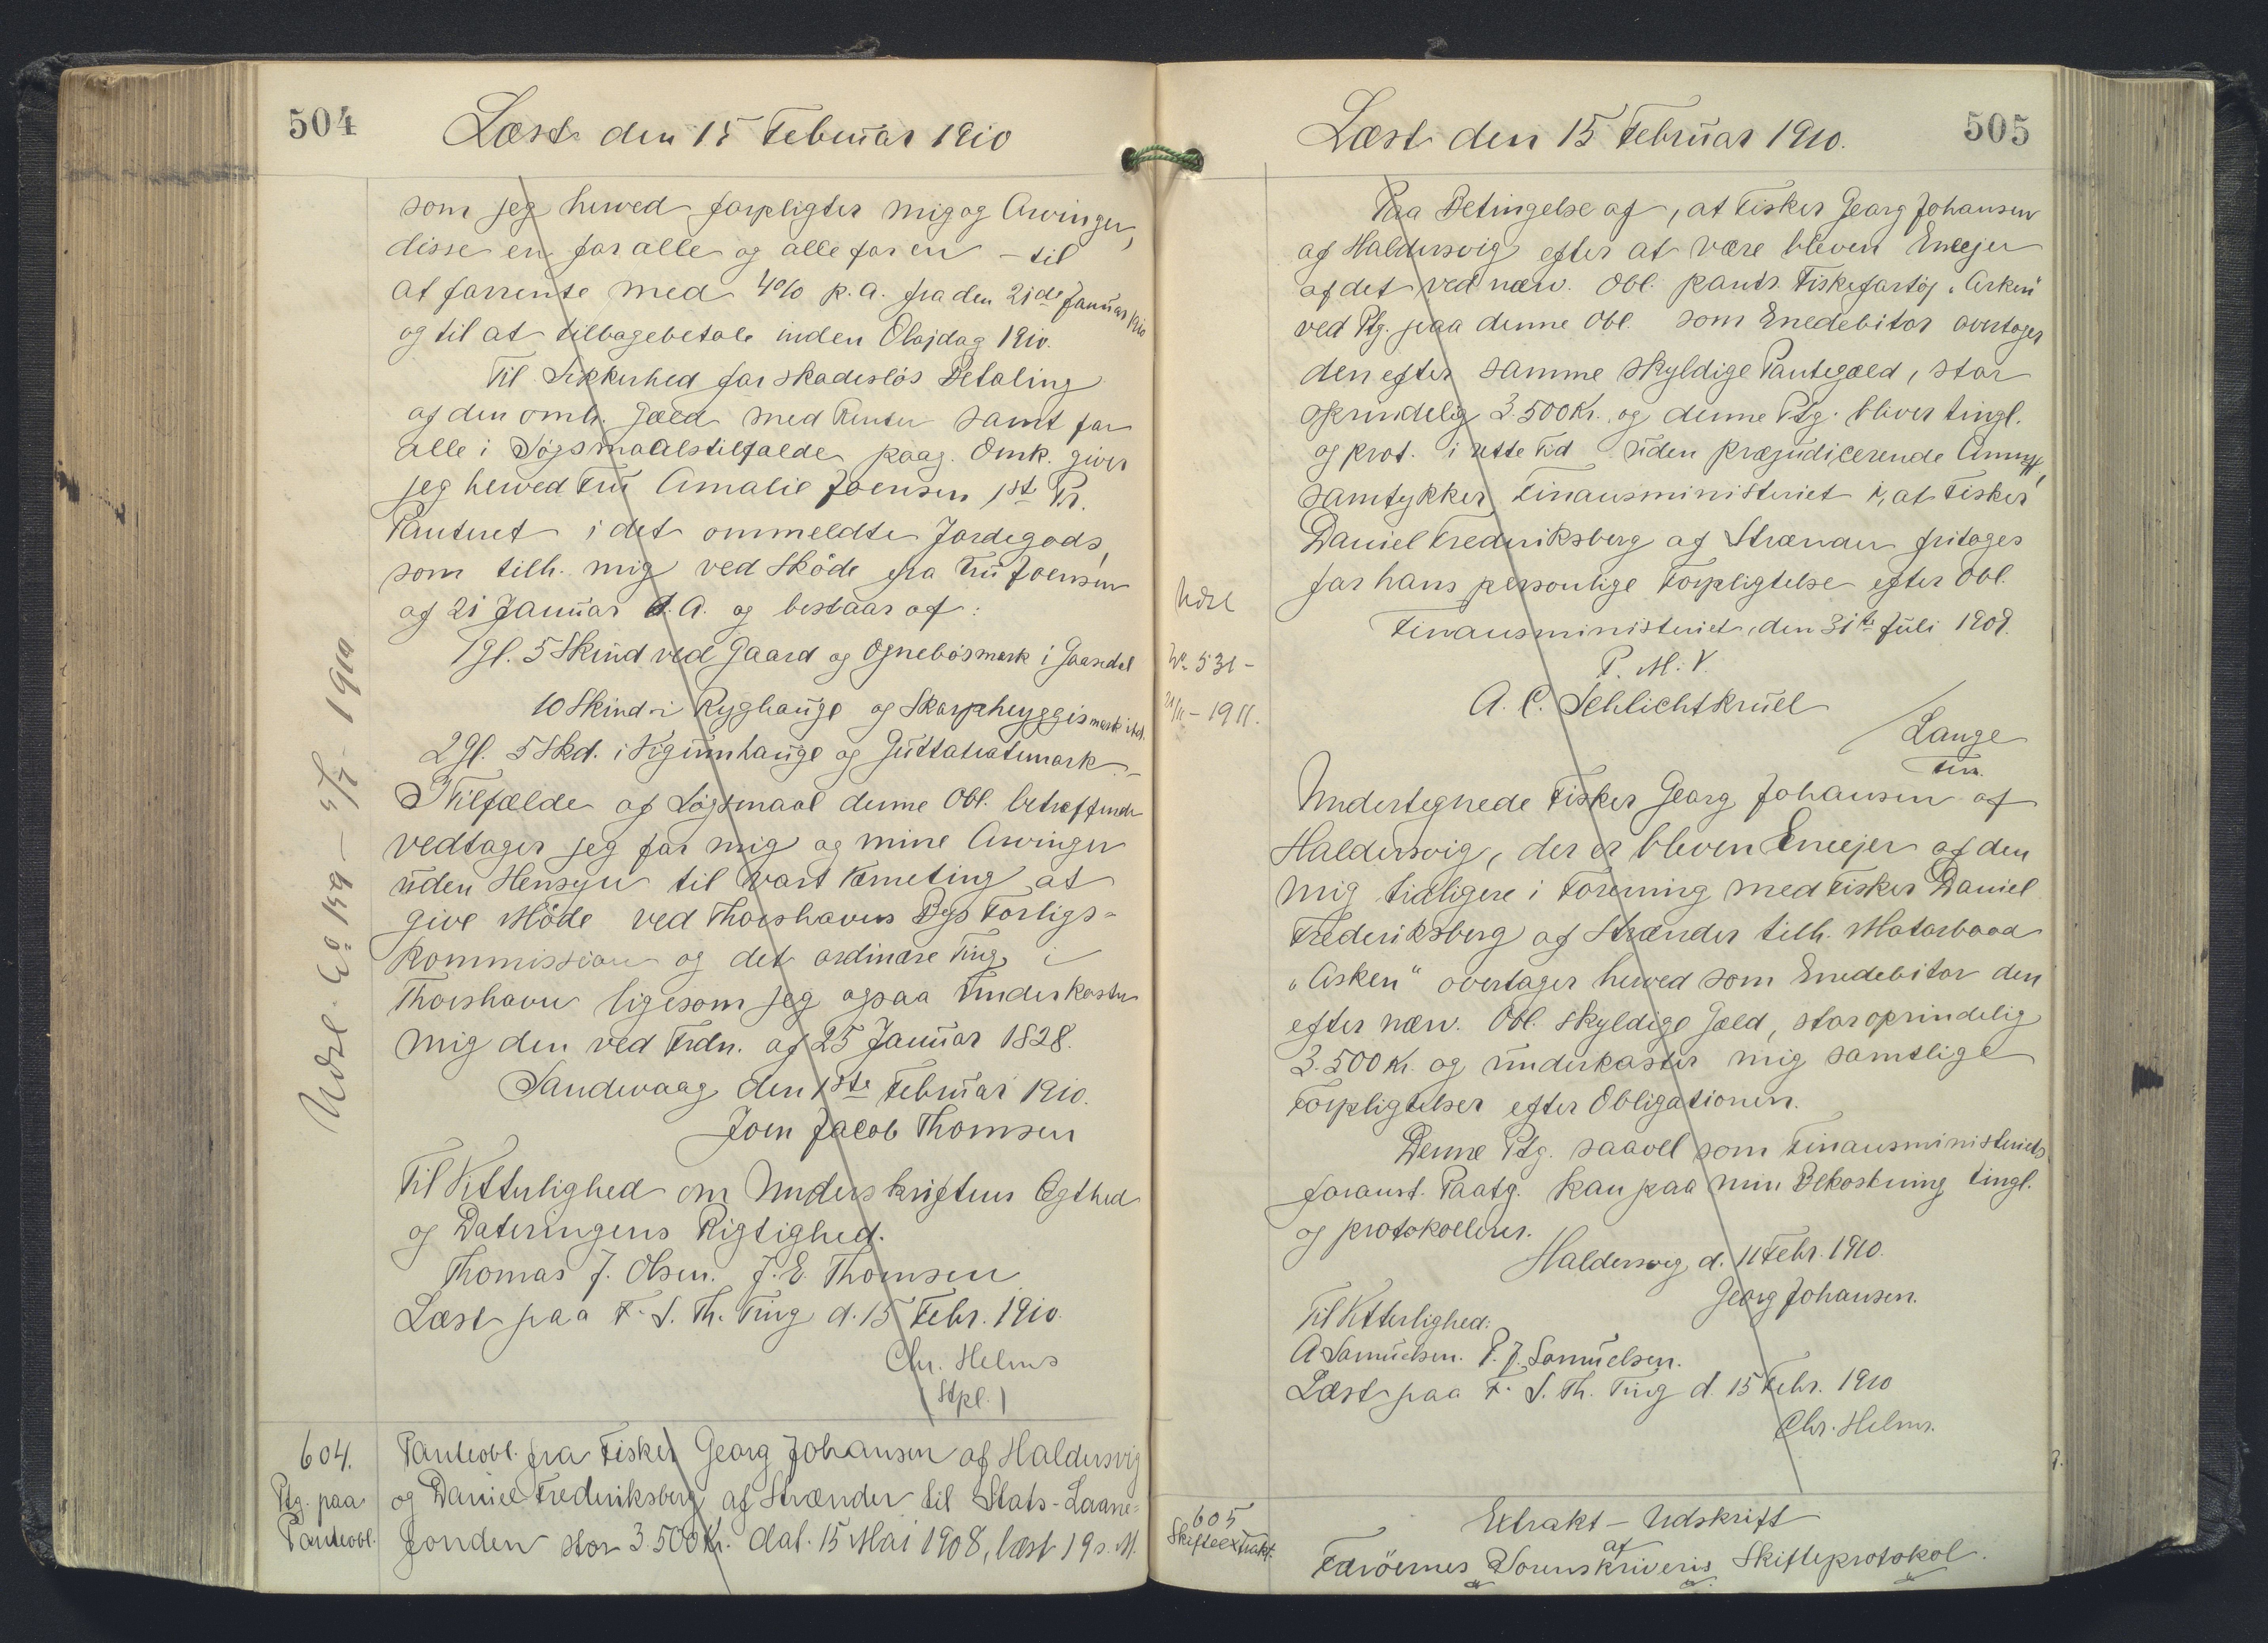 504
Læst den 15 Februar 1910
som jeg herved forpligter mig og Arvinger,
disse en for alle og alle for en - til
at forrente med 4% p.a. fra den 21de Januar 1910
og til at tilbagebetale inden Olajdag 1910.
Til Sikkerhed for skadeslös Betaling
af den omh. Gæld med Renter samt for
alle i Søgsmaalstilfælde paag. Omk. giver
jeg herved Fru Amalie Joensen 1ste Pr.
Panteret i det ommeldte Jordegods,
som tilh. mig ved Sköde fra Fru Joensen
af 21 Januar d.A. og bestaar af:
1 Gl. 5 Skind ved Gaard og Ognebösmark i Gaasedal
10 Skind i Ryghauge og Skarpheyggismark ibd.
2 Gl. 5 Skd. i Kigumhauge og Guttatratemark.-
I Tilfælde af Søgsmaal denne Obl. betræffende
vedtager jeg for mig og mine Arvinger
uden Hensyn til vort Værneting at
give Möde ved Thorshavns Bys Forligs=
kommission og det ordinære Ting i
Thorshavn ligesom jeg ogsaa underkaster
mig den ved Frdn. af 25 Januar 1828.
Sandevaag den 1ste Februar 1910.
Joen Jacob Thomsen
Til Vitterlighed om Underskriftens Ægthed
og Dateringens Rigtighed.
Thomas J. Olsen. J. E. Thomsen
Læst paa F. S. Th. Ting d. 15 Febr. 1910.
Chr. Helms
(Stpl.)
Udsl. No 159 - 5/7 1910
604.
Ptg. paa
Panteobl.
Panteobl. fra Fisker Georg Johansen af Haldersvig
og Daniel Frederiksberg af Strænder til Stats-Laane=
fonden stor 3.500 Kr. dat. 15 Mai 1908, læst 19 s. M.
Læst den 15 Februar 1910.
505
Paa Betingelse af, at Fisker Georg Johansen
af Haldersvig efter at være bleven Eneejer
af det ved nærv. Obl. pants. Fiskefartøj "Asken"
ved Ptg. paa denne Obl. som Enedebitor overtager
den efter samme skyldige Pantegæld, stor
oprindelig 3.500 Kr. og denne Ptg. bliver tingl.
og prot. i rette Tid uden præjudicerende Anm.,
samtykker Finansministeriet i, at Fisker
Daniel Frederiksberg af Strænder fritages
for hans personlige Forpligtelse efter Obl.
Finansministeriet, den 31te Juli 1909.
P. M. V.
A. C. Schlichtkrull
/ Lange
Fm.
Udsl
No 531 -
21/11 - 1911.
Undertegnede Fisker Georg Johansen af
Haldersvig, der er bleven Eneejer af den
mig tidligere i Forening med Fisker Daniel
Frederiksberg af Strænder tilh. Motorbaad
"Asken" overtager herved som Enedebitor den
efter nærv. Obl. skyldige Gæld, stor oprindelig
3.500 Kr. og underkaster mig samtlige
Forpligtelser efter Obligationen.
Denne Ptg. saavel som Finansministeriets
foranst. Paatg. kan paa min Bekostning tingl.
og protokolleres.
Haldersvig d. 11 Febr. 1910.
Georg Johansen.
Til Vitterlighed:
A Samuelsen. P. J. Samuelsen.
Læst paa F. S. Th. Ting d. 15 Febr. 1910
Chr. Helms.
605
Skifteextrakt.
Extrakt - Udskrift
af
Færöernes Sorenskriveris Skifteprotokol.